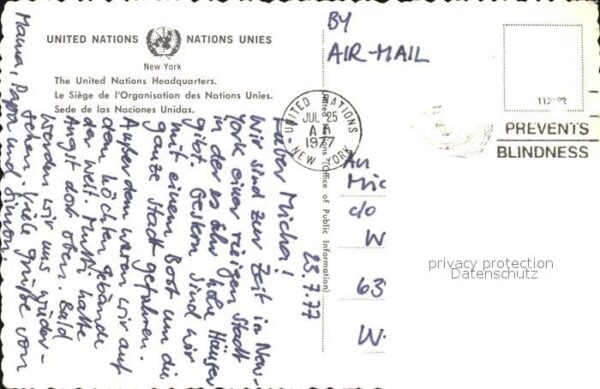 UNITED NATIONS NATIONS UNIES
New York
The United Nations Headquarters.
Le Siège de l'Organisation des Nations Unies.
Sede de las Naciones Unidas.
BY
AIR-MAIL
UNITED NATIONS
JUL 25
1977
NEW YORK
PREVENTS
BLINDNESS
(Office of Public Information)
23.7.77
Lieber Micha!
Wir sind zur Zeit in New
York einer riesigen Stadt
in der es aber hohe Häuser
gibt. Gestern sind wir
mit einem Boot um die
ganze Stadt gefahren.
Außerdem waren wir auf
dem höchsten Gebäude
der Welt. Mutti hatte
Angst dort oben. Bald
werden wir uns wieder-
sehen. Viele Grüße von
Mama, Papa und
An
Mic
c/o
W
63
W.
privacy protection
Datenschutz